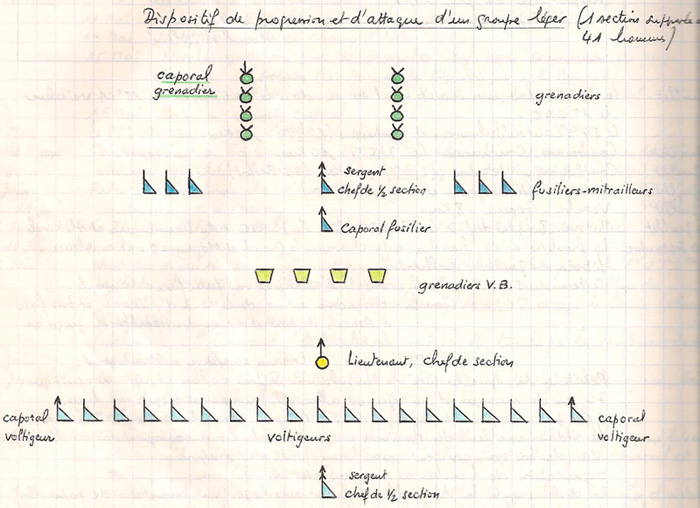 Dispositif de progression et d'attaque d'un groupe léger (1 section
41 hommes)
caporal
grenadier
grenadiers
sergent
chef de 1/2 section
fusiliers-mitrailleurs
Caporal fusilier
grenadiers V.B.
Lieutenant, chef de section
caporal
voltigeur
voltigeurs
caporal
voltigeur
sergent
chef de 1/2 section